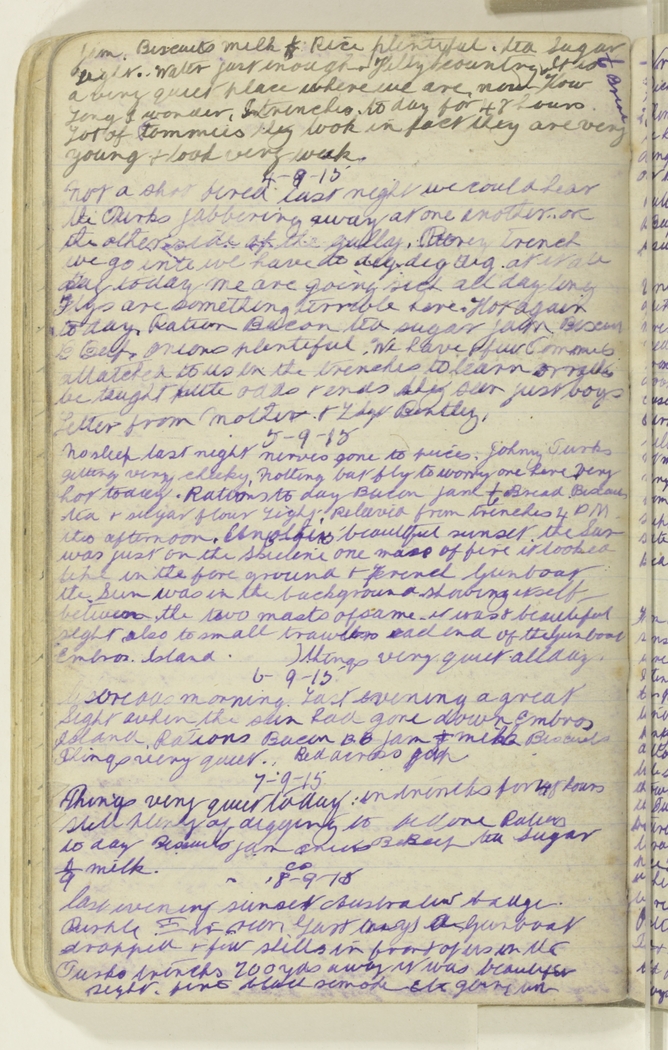 Jam. Biscuits milk & Rice plentiful. tea Sugar
light. Water just enough. Hilly country. It is
a very quiet place where we are now. How
long I wonder. In trenches to day for 48 hours.
Lot of Tommies they look in fact they are very
young & look very weak.
4-9-15
Not a shot fired last night we could hear
the Turks jabbering away at one another. on
the other side of the gully. Every trench
we go into we have to dig dig dig. at it all
day today me are going sick all day long
Flys are something terrible here. Hot again
to day. Ration Bacon tea sugar jam Biscuits
B Beef. Onions plentiful. We have a few Tommies
attached to us in the trenches to learn or rather
be taught little odds & ends they are just boys
letter from Mother. & Bentley.
5-9-15
No sleep last night nerves gone to pieces. Johnny Turks
getting very cheeky. Nothing but fly to worry one here. Very
hot today. Rations to day Bacon jam Bread Biscuits
tea & sugar flour light. Relieved from trenches 4 P.M
this afternoon. beautiful sunset. the Sun
was just on the one mass of fire it looked
like in the fore ground a French Gunboat
the Sun was in the background showing itself
between the two masts of same. it was a beautiful
sight also to small trawlers ead end of the Gunboat
Embros. Island. ) things very quiet all day.
6-9-15
morning. Last evening a great
Sight when the sun had gone down Embros
Island. Rations Bacon BB jam & milk Biscuits
Things very quiet.
7-9-15
Things very quiet to day. in trenches for 48 hours
still plenty of digging to be done Rations
to day Biscuits jam B Beef tea Sugar
& milk.
8-9-15
last evening sunset
Gunboat
dropped a few shells in front of us in the
Turks trenches 200 yds away it was beautiful
sight. black smoke etc going up